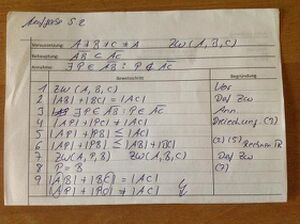 Aufgabe 5.2
Voraussetzung: A ≠ B ≠ C ≠ A   Zw(A, B, C)
Behauptung: AB ⊂ AC
Annahme: ∃ P ∈ AB : P ∉ AC
Beweisschritt Begründung
1 Zw(A, B, C) Vor
2 |AB| + |BC| = |AC| Def Zw
3 ∃ P ∈ AB : P ∉ AC Ann.
4 |AP| + |PC| ≠ |AC| (3)
5 |AP| + |PB| ≤ |AC|
6 |AP| + |PB| ≤ |AB| + |BC| (2) (5) Rechnen IR
7 Zw(A, P, B) Zw(A, B, C) Def Zw
8 P = B (7)
9 |AB| + |BC| = |AC|
|AP| + |PC| ≠ |AC|